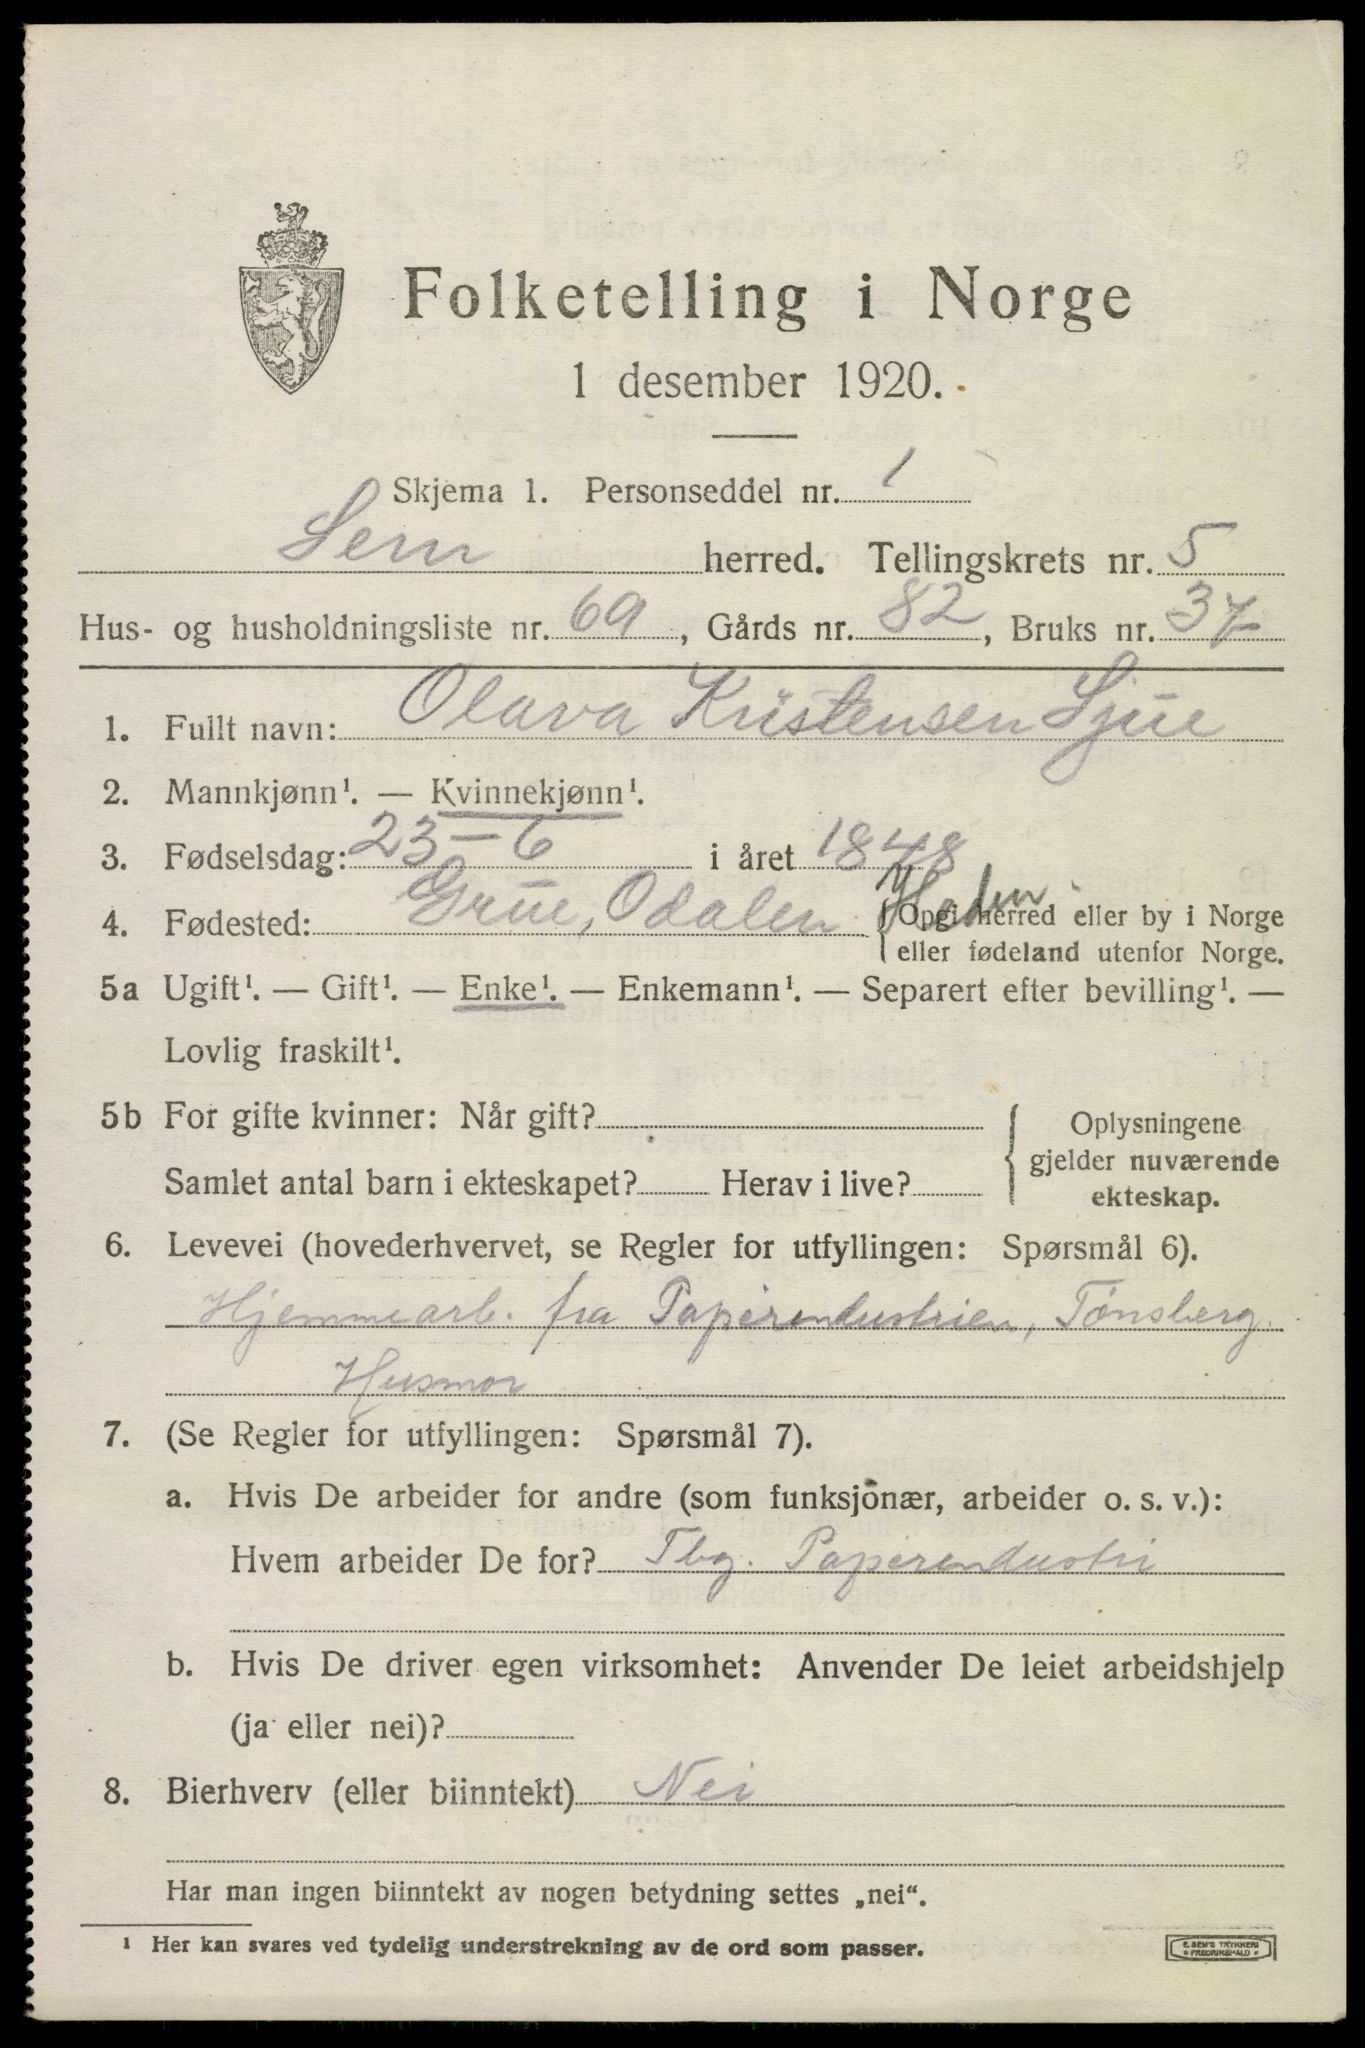 Folketelling i Norge
1 desember 1920.
Skjema 1. Personseddel nr. 1
Sem herred. Tellingskrets nr. 5
Hus- og husholdningsliste nr. 69, Gårds nr. 82, Bruks nr. 37
1. Fullt navn: Olava Kristensen Sjue
2. Mannkjønn¹. — Kvinnekjønn¹.
3. Fødselsdag: 23-6 i året 1848
4. Fødested: Grue, Odalen Hedm {Opgi herred eller by i Norge
eller fødeland utenfor Norge.
5a Ugift¹. — Gift¹. — Enke¹. — Enkemann¹. — Separert efter bevilling¹. —
Lovlig fraskilt¹.
5b For gifte kvinner: Når gift? { Oplysningene
gjelder nuværende
Samlet antal barn i ekteskapet? Herav i live? ekteskap.
6. Levevei (hovederhvervet, se Regler for utfyllingen: Spørsmål 6).
Hjemmearb. fra Papirindustrien, Tønsberg.
Husmor
7. (Se Regler for utfyllingen: Spørsmål 7).
a. Hvis De arbeider for andre (som funksjonær, arbeider o. s. v.):
Hvem arbeider De for? Tbg. Paperindustri
b. Hvis De driver egen virksomhet: Anvender De leiet arbeidshjelp
(ja eller nei)?
8. Bierhverv (eller biinntekt) Nei
Har man ingen biinntekt av nogen betydning settes „nei“.
¹ Her kan svares ved tydelig understrekning av de ord som passer.
E. SEM'S TRYKKERI
FREDRIKSHALD